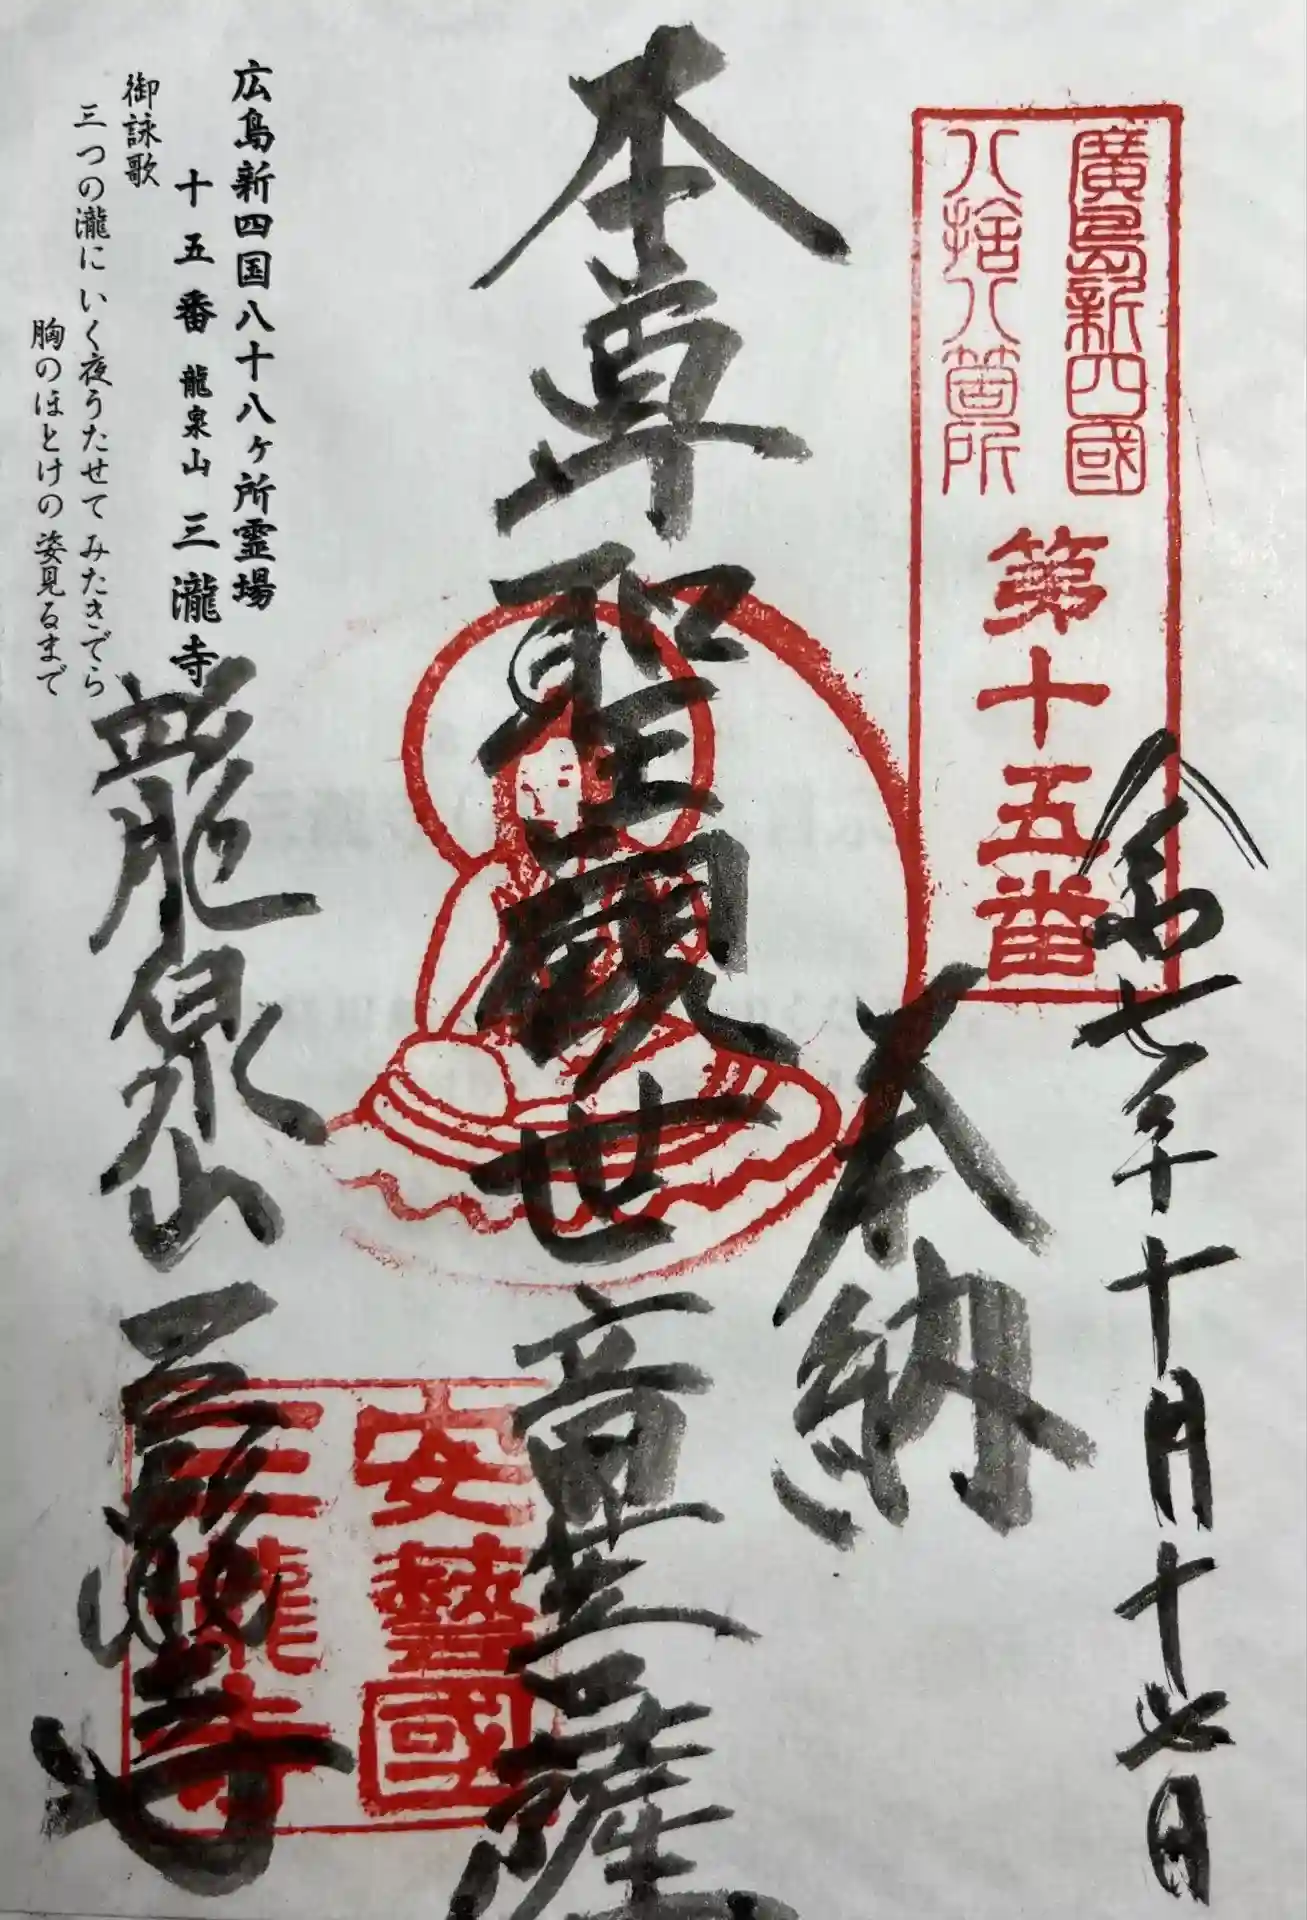 令和七年十月十七日
廣島新四國
八拾八箇所
第十五番
奉納
本尊聖観世音菩薩
安藝國
三瀧寺
龍泉山 三瀧寺
広島新四国八十八ヶ所霊場
十五番 龍泉山 三瀧寺
御詠歌
三つの瀧にいく夜うたせてみたきでら
胸のほとけの姿見るまで